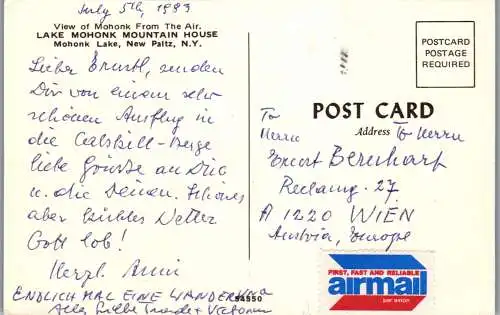 July 5th, 1993
View of Mohonk From The Air.
LAKE MOHONK MOUNTAIN HOUSE
Mohonk Lake, New Paltz, N.Y.
Lieber Ernstl, senden
Dir von einem sehr
schönen Ausflug in
die Catskill-Berge
liebe Grüsse an Dich
u. die Deinen. Schönes
aber kühles Wetter
Gott lob!
Herzl. Anni
ENDLICH MAL EINE WANDERUNG
Alles Liebe
54550
POSTCARD
POSTAGE
REQUIRED
POST CARD
Address
To
Herrn
To Herrn
Ernst Bernhart
Reclamg. 27
A 1220 WIEN
Austria, Europe
FIRST, FAST AND RELIABLE
airmail
par avion